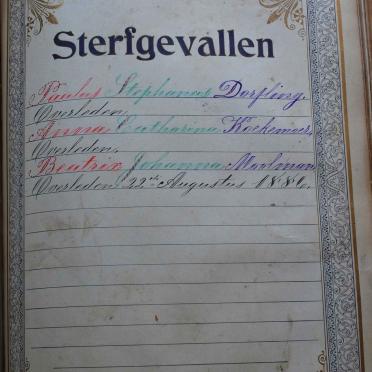 Sterfgevallen
Paulus Stephanus Dorfling.
Overleden.
Anna Catharina Kockemoer.
Overleden.
Beatrix Johanna Moolman.
Overleden. 22ste Augustus 1886.